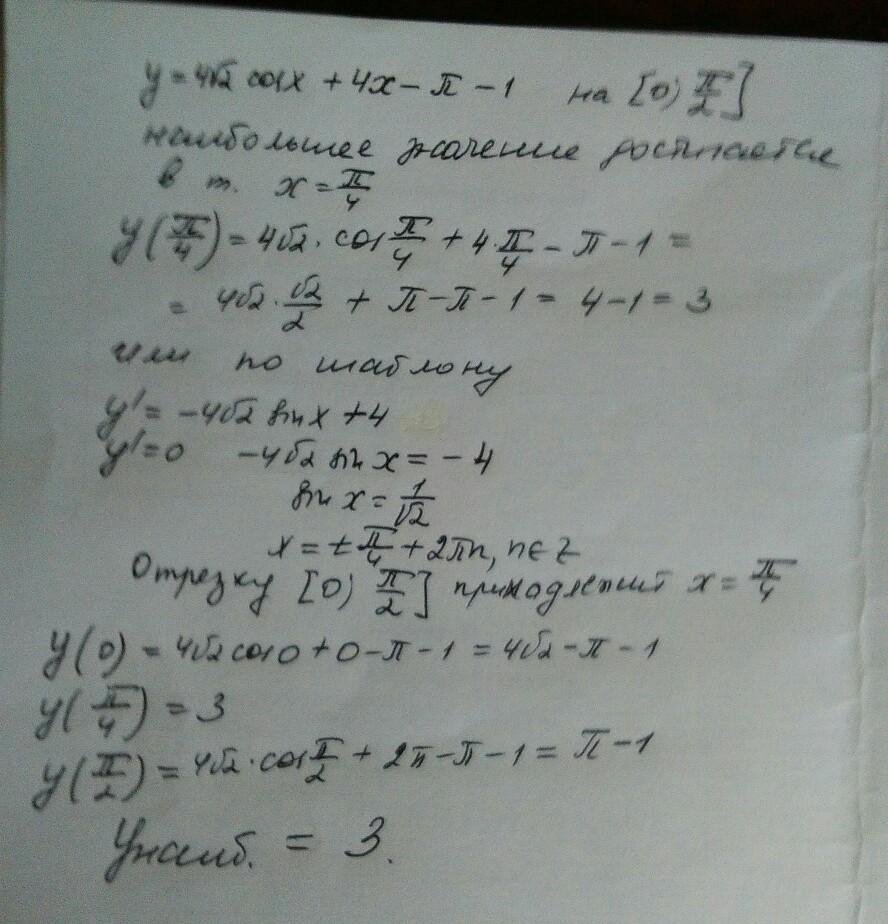 y = 4√2 cosx + 4x − π − 1 на [0; π/2]
наибольшее значение достигается
в т. x = π/4
y(π/4) = 4√2 · cos π/4 + 4·π/4 − π − 1 =
= 4√2 · √2/2 + π − π − 1 = 4 − 1 = 3
или по шаблону
y' = −4√2 sin x + 4
y' = 0 −4√2 sin x = −4
sin x = 1/√2
x = ± π/4 + 2πn, n ∈ Z
Отрезку [0; π/2] принадлежит x = π/4
y(0) = 4√2 cos 0 + 0 − π − 1 = 4√2 − π − 1
y(π/4) = 3
y(π/2) = 4√2 · cos π/2 + 2π − π − 1 = π − 1
Yнаиб. = 3.